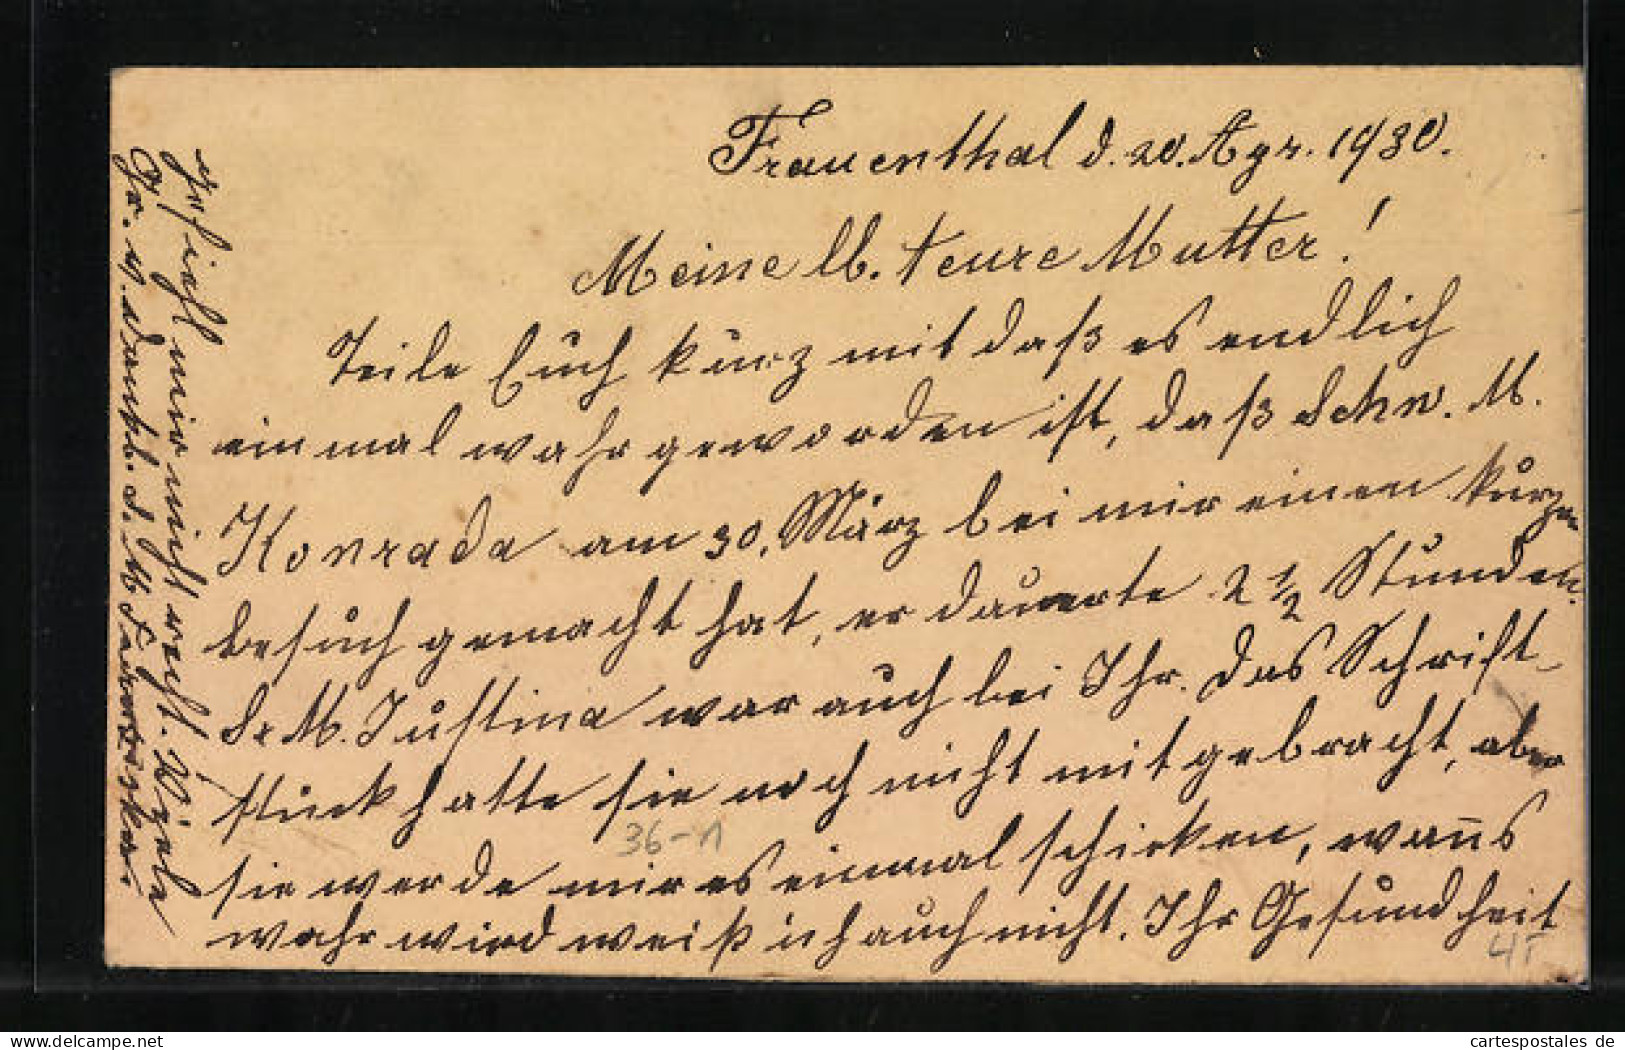 Frauenthal d. 20. Apr. 1930.
Meine lb. teure Mutter!
Teile Euch kurz mit daß es endlich
einmal wahr geworden ist, daß Schw. M.
Konrada am 30. März bei mir einen kurzen
besuch gemacht hat, er dauerte 2 1/2 Stunden.
Sr M. Justina war auch bei Ihr. Das Schrift-
stück hatte sie noch nicht mitgebracht, aber
sie werde mir es einmal schicken, wan̄s
wahr wird weiß ich auch nicht. Ihr Gesundheit
gefiehl mir nicht recht. Viele
Gr. v. dankb. S. M.
36-11
4T
cartespostales.de